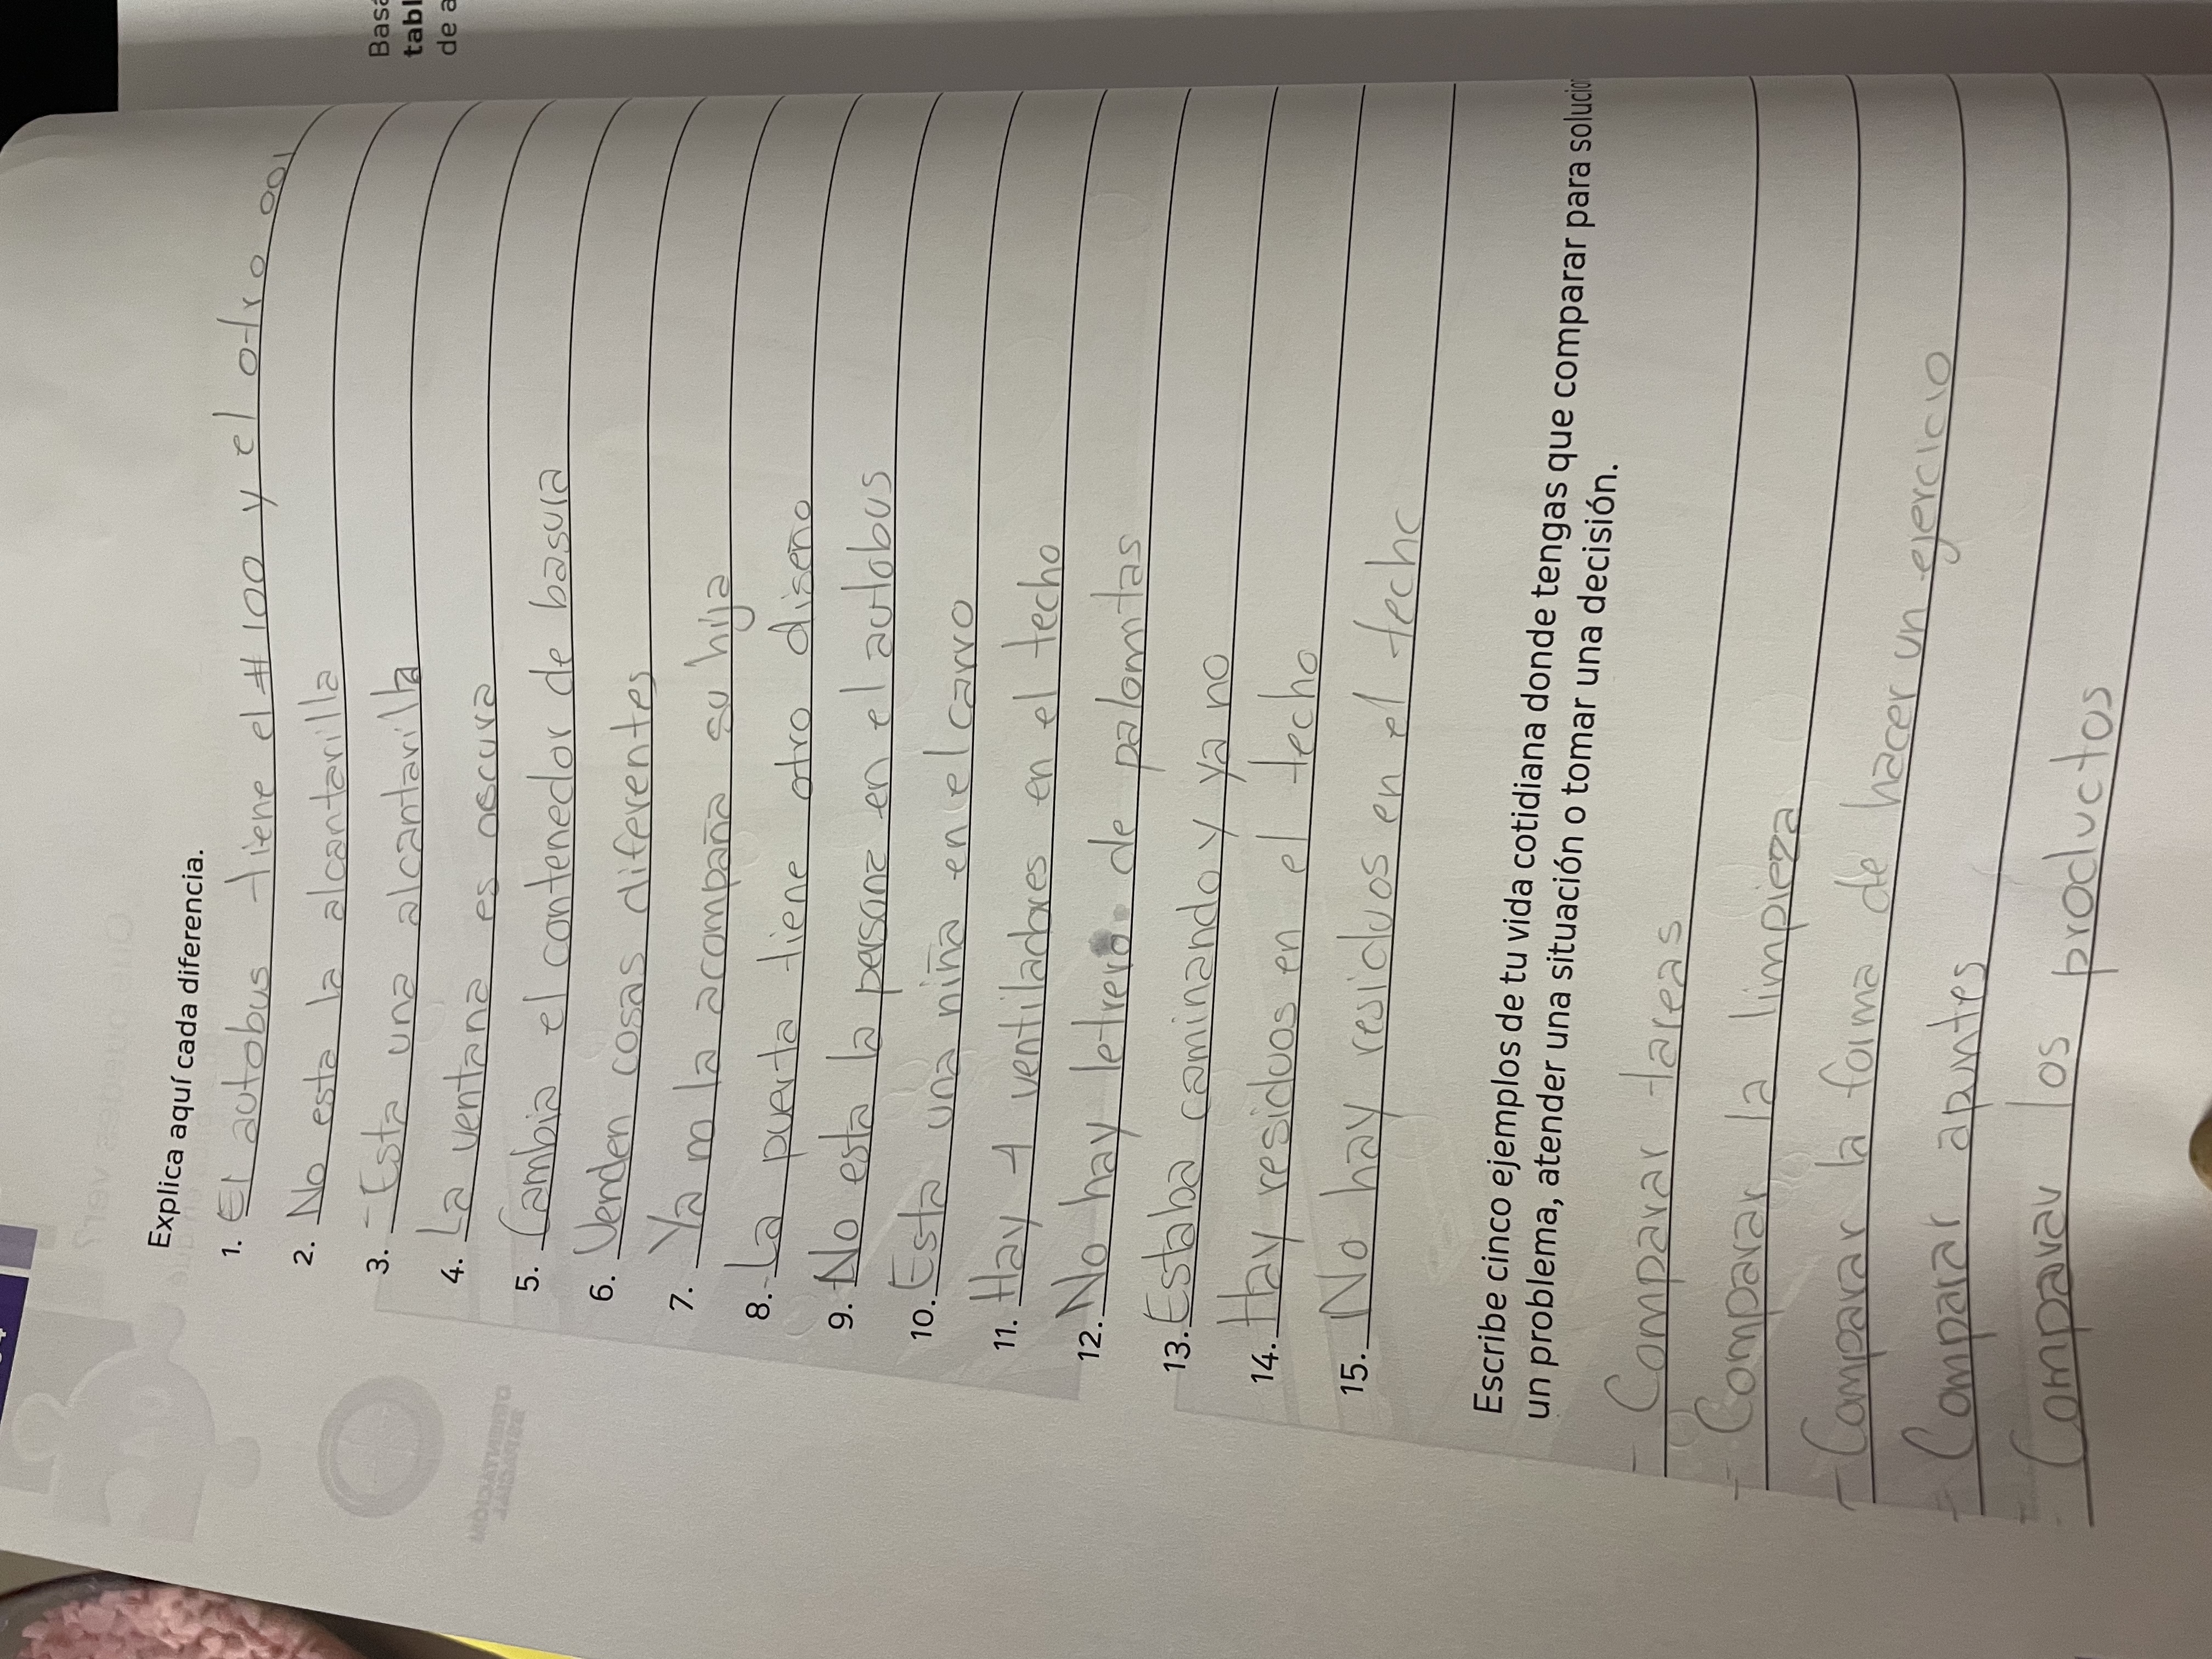 Explica aquí cada diferencia.
1. El autobus tiene el #100 y el otro 001
2. No esta la alcantarilla
3. - Esta una alcantarilla
4. La ventana es oscura
5. Cambia el contenedor de basura
6. Venden cosas diferentes
7. Ya no la acompaña su hija
8. - La puerta tiene otro diseño
9. No esta la persona en el autobus
10. Esta una niña en el carro
11. Hay 4 ventiladores en el techo
12. No hay letrero de palomitas
13. Estaba caminando y ya no
14. Hay residuos en el techo
15. No hay residuos en el techo
Escribe cinco ejemplos de tu vida cotidiana donde tengas que comparar para solucio
un problema, atender una situación o tomar una decisión.
- Comparar tareas
- Comparar la limpieza
- Comparar la forma de hacer un ejercicio
- Comparar apuntes
- Comparar los productos
Basa
tabl
de a